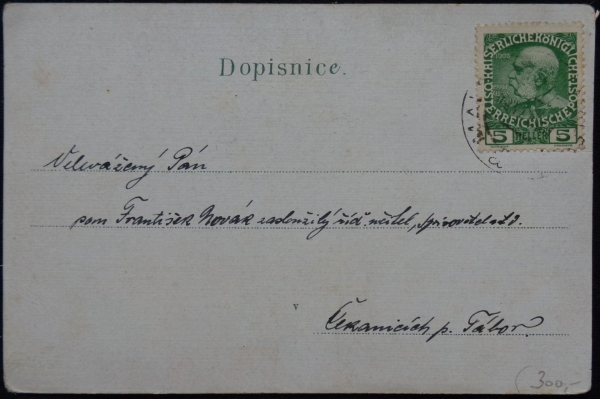 Dopisnice.
KAISERLICHE KÖNIGLICHE
ÖSTERREICHISCHE POST
1908
5 HELLER 5
Velevážený Pán
pan František Novák zasloužilý říd. učitel, spisovatel atd.
v Čekanicích p. Tábor.
300,-